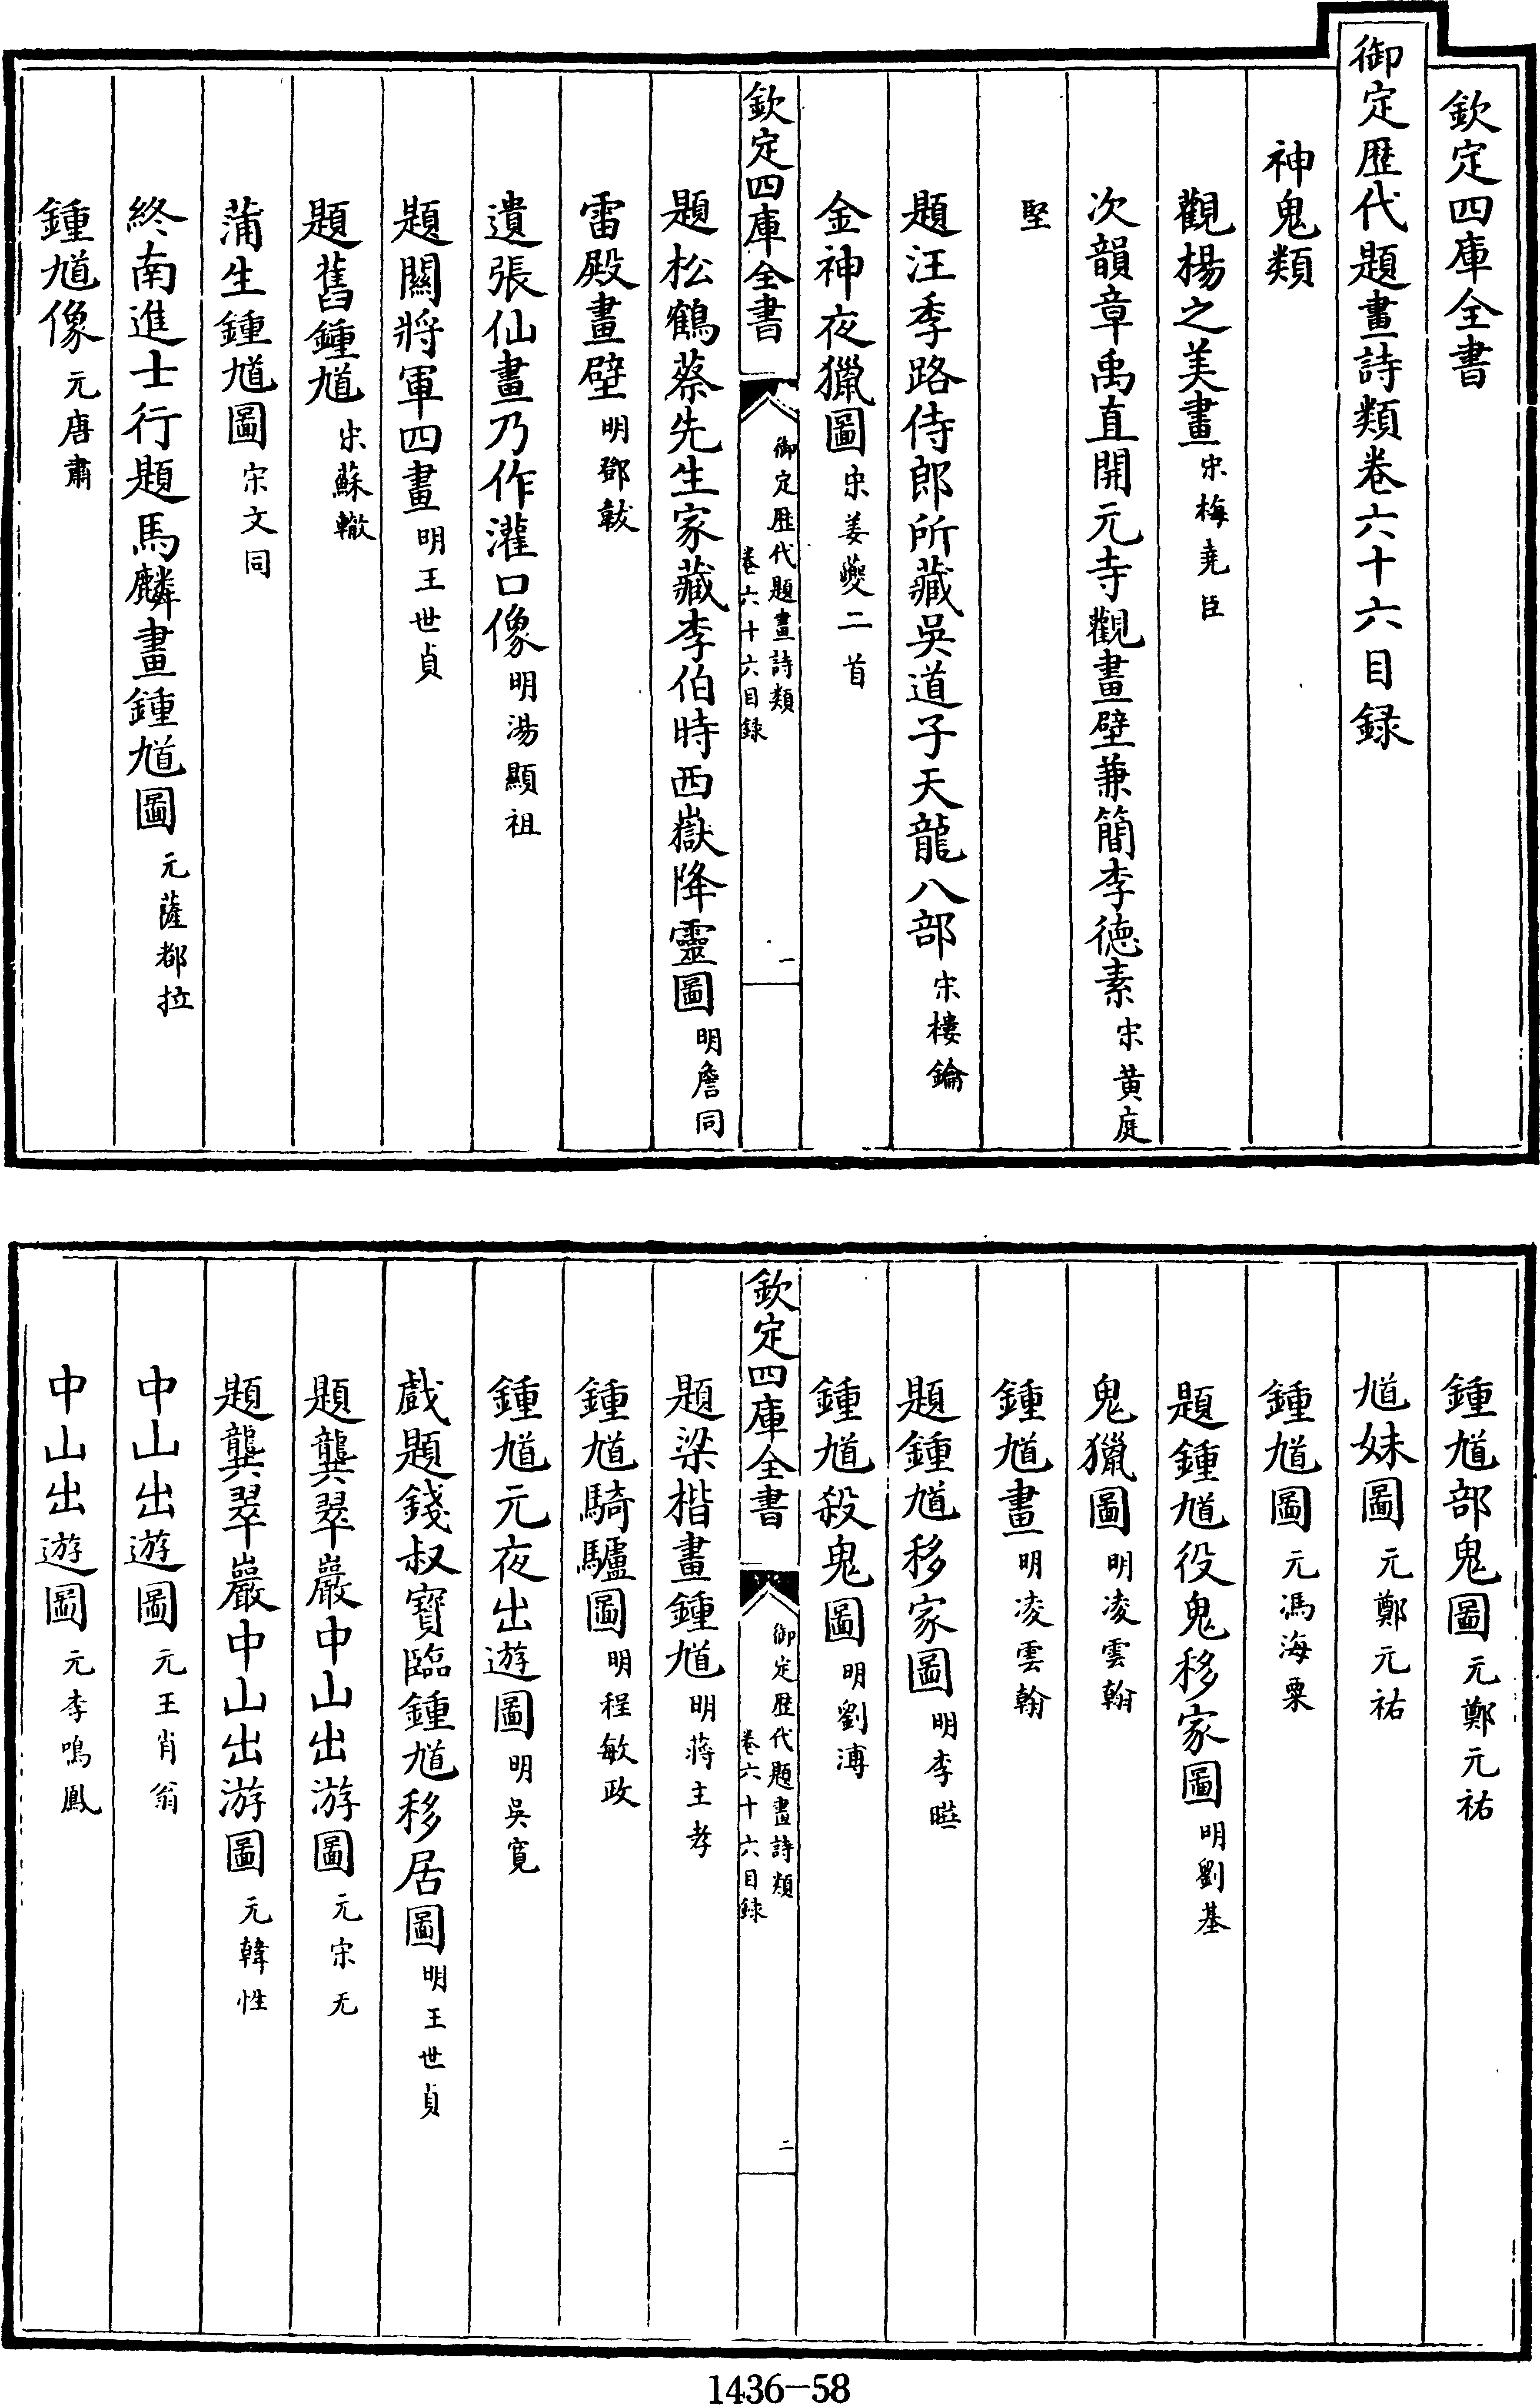 欽定四庫全書
御定歷代題畫詩類卷六十六目録
神鬼類
觀楊之美畫 宋梅堯臣
次韻章禹直開元寺觀畫壁兼簡李徳素 宋黄庭
堅
題汪季路侍郎所藏吳道子天龍八部 宋樓鑰
金神夜獵圖 宋姜夔二首
欽定四庫全書
御定歷代題畫詩類
卷六十六目録
一
題松鶴蔡先生家藏李伯時西嶽降靈圖 明詹同
雷殿畫壁 明鄧韍
遺張仙畫乃作灌口像 明湯顯祖
題關將軍四畫 明王世貞
題舊鍾馗 宋蘇轍
蒲生鍾馗圖 宋文同
終南進士行題馬麟畫鍾馗圖 元薩都拉
鍾馗像 元唐肅
鍾馗部鬼圖 元鄭元祐
馗妹圖 元鄭元祐
鍾馗圖 元馮海粟
題鍾馗役鬼移家圖 明劉基
鬼獵圖 明凌雲翰
鍾馗畫 明凌雲翰
題鍾馗移家圖 明李曄
鍾馗殺鬼圖 明劉溥
欽定四庫全書
御定歷代題畫詩類
卷六十六目録
二
題梁楷畫鍾馗 明蔣主孝
鍾馗騎驢圖 明程敏政
鍾馗元夜出遊圖 明吳寛
戲題錢叔寶臨鍾馗移居圖 明王世貞
題龔翠巖中山出游圖 元宋无
題龔翠巖中山出游圖 元韓性
中山出遊圖 元王肖翁
中山出遊圖 元李鳴鳳
1436-58